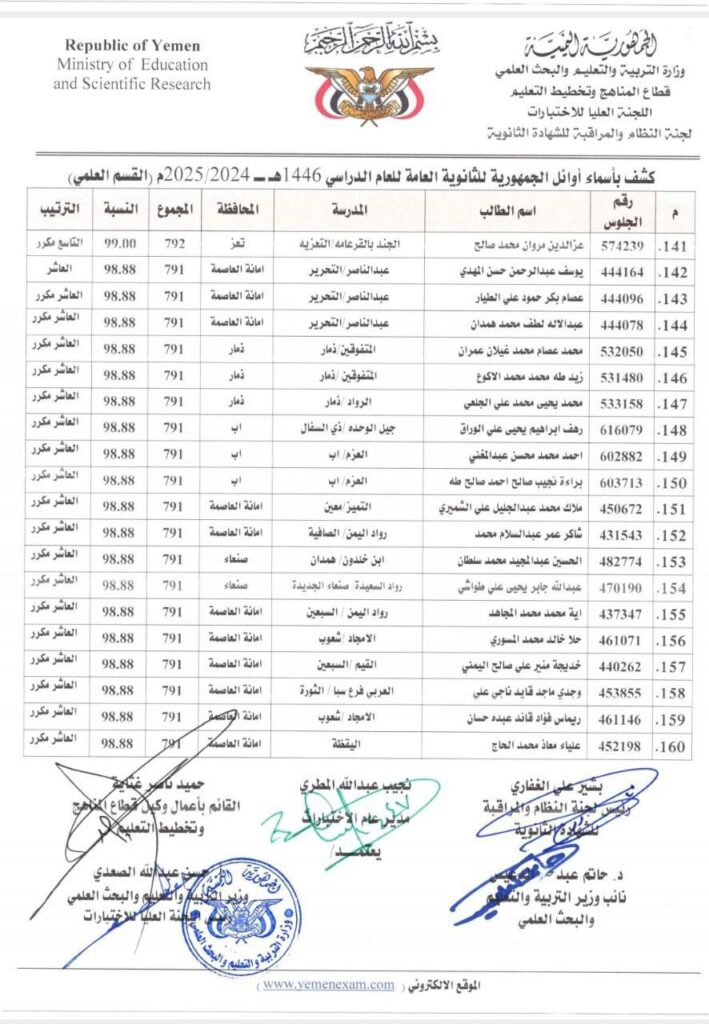 Republic of Yemen
Ministry of Education
and Scientific Research
بسم الله الرحمن الرحيم
الجمهورية اليمنية
وزارة التربية والتعليم والبحث العلمي
قطاع المناهج وتخطيط التعليم
اللجنة العليا للاختبارات
لجنة النظام والمراقبة للشهادة الثانوية
كشف بأسماء أوائل الجمهورية للثانوية العامة للعام الدراسي 1446هـ ــ 2025/2024م (القسم العلمي)
م رقم الجلوس اسم الطالب المدرسة المحافظة المجموع النسبة الترتيب
141. 574239 عزالدين مروان محمد صالح الجند بالقرعامه/التعزيه تعز 792 99.00 التاسع مكرر
142. 444164 يوسف عبدالرحمن حسن المهدي عبدالناصر/التحرير امانة العاصمة 791 98.88 العاشر
143. 444096 عصام بكر حمود علي الطيار عبدالناصر/التحرير امانة العاصمة 791 98.88 العاشر مكرر
144. 444078 عبدالاله لطف محمد همدان عبدالناصر/التحرير امانة العاصمة 791 98.88 العاشر مكرر
145. 532050 محمد عصام محمد غيلان عمران المتفوقين/ذمار ذمار 791 98.88 العاشر مكرر
146. 531480 زيد طه محمد محمد الاكوع المتفوقين/ذمار ذمار 791 98.88 العاشر مكرر
147. 533158 محمد يحيى محمد علي الجلعي الرواد/ذمار ذمار 791 98.88 العاشر مكرر
148. 616079 رهف ابراهيم يحيى علي الوراق جيل الوحده/ذي السفال اب 791 98.88 العاشر مكرر
149. 602882 احمد محمد محسن عبدالمغني العزم/اب اب 791 98.88 العاشر مكرر
150. 603713 براءة نجيب صالح احمد صالح طه العزم/اب اب 791 98.88 العاشر مكرر
151. 450672 ملاك محمد عبدالجليل علي الشميري التميز/معين امانة العاصمة 791 98.88 العاشر مكرر
152. 431543 شاكر عمر عبدالسلام محمد رواد اليمن/الصافية امانة العاصمة 791 98.88 العاشر مكرر
153. 482774 الحسين عبدالمجيد محمد سلطان ابن خلدون/همدان صنعاء 791 98.88 العاشر مكرر
154. 470190 عبدالله جابر يحيى علي طواشي رواد السعيدة/صنعاء الجديدة صنعاء 791 98.88 العاشر مكرر
155. 437347 اية محمد محمد المجاهد رواد اليمن/السبعين امانة العاصمة 791 98.88 العاشر مكرر
156. 461071 حلا خالد محمد المسوري الامجاد/شعوب امانة العاصمة 791 98.88 العاشر مكرر
157. 440262 خديجة منير علي صالح اليمني القيم/السبعين امانة العاصمة 791 98.88 العاشر مكرر
158. 453855 وجدي ماجد قايد ناجي علي العربي فرع سبا/الثورة امانة العاصمة 791 98.88 العاشر مكرر
159. 461146 ريماس فؤاد قائد عبده حسان الامجاد/شعوب امانة العاصمة 791 98.88 العاشر مكرر
160. 452198 علياء معاذ محمد الحاج اليقظة امانة العاصمة 791 98.88 العاشر مكرر
بشير علي الغفاري نجيب عبدالله المطري حميد ناصر
رئيس لجنة النظام والمراقبة مدير عام الاختبارات القائم بأعمال وكيل قطاع المناهج
للشهادة الثانوية وتخطيط التعليم
يعتمد/
د. حاتم حسن عبدالله الصعدي
نائب وزير التربية والتعليم وزير التربية والتعليم والبحث العلمي
والبحث العلمي رئيس اللجنة العليا للاختبارات
الجمهورية اليمنية
وزارة التربية والتعليم والبحث العلمي
الموقع الالكتروني ( www.yemenexam.com )